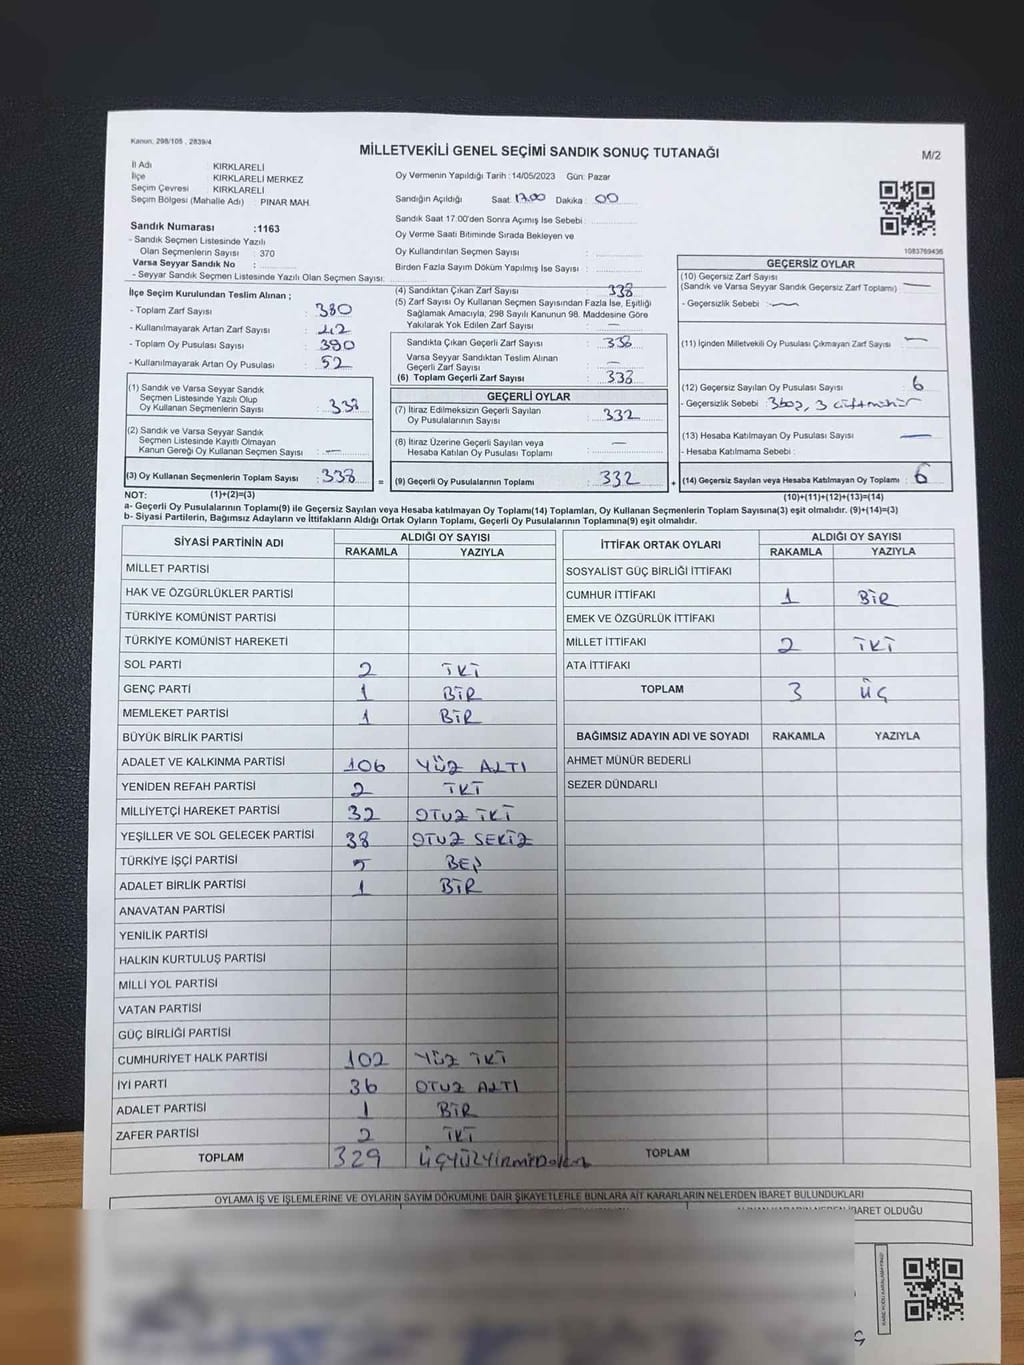 Kanun: 298/105 , 2839/4
MİLLETVEKİLİ GENEL SEÇİMİ SANDIK SONUÇ TUTANAĞI
M/2
İl Adı KIRKLARELİ
İlçe KIRKLARELİ MERKEZ
Seçim Çevresi KIRKLARELİ
Seçim Bölgesi (Mahalle Adı) : PINAR MAH.
Sandık Numarası :1163
- Sandık Seçmen Listesinde Yazılı
Olan Seçmenlerin Sayısı : 370
Varsa Seyyar Sandık No :
- Seyyar Sandık Seçmen Listesinde Yazılı Olan Seçmen Sayısı:
Oy Vermenin Yapıldığı Tarih :14/05/2023 Gün: Pazar
Sandığın Açıldığı Saat: 17.00 Dakika : 00
Sandık Saat 17:00'den Sonra Açımış İse Sebebi :
Oy Verme Saati Bitiminde Sırada Bekleyen ve
Oy Kullandırılan Seçmen Sayısı :
Birden Fazla Sayım Döküm Yapılmış İse Sayısı :
1083769436
İlçe Seçim Kurulundan Teslim Alınan ;
- Toplam Zarf Sayısı : 380
- Kullanılmayarak Artan Zarf Sayısı : 42
- Toplam Oy Pusulası Sayısı : 390
- Kullanılmayarak Artan Oy Pusulası : 52
(1) Sandık ve Varsa Seyyar Sandık
Seçmen Listesinde Yazılı Olup
Oy Kullanan Seçmenlerin Sayısı : 338
(2) Sandık ve Varsa Seyyar Sandık
Seçmen Listesinde Kayıtlı Olmayan
Kanun Gereği Oy Kullanan Seçmen Sayısı : —
(3) Oy Kullanan Seçmenlerin Toplam Sayısı : 338
(4) Sandıktan Çıkan Zarf Sayısı : 338
(5) Zarf Sayısı Oy Kullanan Seçmen Sayısından Fazla İse, Eşitliği
Sağlamak Amacıyla, 298 Sayılı Kanunun 98. Maddesine Göre
Yakılarak Yok Edilen Zarf Sayısı : —
Sandıkta Çıkan Geçerli Zarf Sayısı : 338
Varsa Seyyar Sandıktan Teslim Alınan
Geçerli Zarf Sayısı : —
(6) Toplam Geçerli Zarf Sayısı : 338
GEÇERLİ OYLAR
(7) İtiraz Edilmeksizin Geçerli Sayılan
Oy Pusulalarının Sayısı : 332
(8) İtiraz Üzerine Geçerli Sayılan veya
Hesaba Katılan Oy Pusulası Toplamı : —
= (9) Geçerli Oy Pusulalarının Toplamı : 332
GEÇERSİZ OYLAR
(10) Geçersiz Zarf Sayısı
(Sandık ve Varsa Seyyar Sandık Geçersiz Zarf Toplamı) : —
- Geçersizlik Sebebi : —
(11) İçinden Milletvekili Oy Pusulası Çıkmayan Zarf Sayısı : —
(12) Geçersiz Sayılan Oy Pusulası Sayısı : 6
- Geçersizlik Sebebi : 3 boş, 3 çift mühür
(13) Hesaba Katılmayan Oy Pusulası Sayısı : —
- Hesaba Katılmama Sebebi :
+ (14) Geçersiz Sayılan veya Hesaba Katılmayan Oy Toplamı : 6
NOT: (1)+(2)=(3) (10)+(11)+(12)+(13)=(14)
a- Geçerli Oy Pusulalarının Toplamı(9) ile Geçersiz Sayılan veya Hesaba katılmayan Oy Toplamı(14) Toplamları, Oy Kullanan Seçmenlerin Toplam Sayısına(3) eşit olmalıdır. (9)+(14)=(3)
b- Siyasi Partilerin, Bağımsız Adayların ve İttifakların Aldığı Ortak Oyların Toplamı, Geçerli Oy Pusulalarının Toplamına(9) eşit olmalıdır.
SİYASİ PARTİNİN ADI ALDIĞI OY SAYISI
RAKAMLA YAZIYLA
MİLLET PARTİSİ
HAK VE ÖZGÜRLÜKLER PARTİSİ
TÜRKİYE KOMÜNİST PARTİSİ
TÜRKİYE KOMÜNİST HAREKETİ
SOL PARTİ 2 İKİ
GENÇ PARTİ 1 BİR
MEMLEKET PARTİSİ 1 BİR
BÜYÜK BİRLİK PARTİSİ
ADALET VE KALKINMA PARTİSİ 106 YÜZ ALTI
YENİDEN REFAH PARTİSİ 2 İKİ
MİLLİYETÇİ HAREKET PARTİSİ 32 OTUZ İKİ
YEŞİLLER VE SOL GELECEK PARTİSİ 38 OTUZ SEKİZ
TÜRKİYE İŞÇİ PARTİSİ 5 BEŞ
ADALET BİRLİK PARTİSİ 1 BİR
ANAVATAN PARTİSİ
YENİLİK PARTİSİ
HALKIN KURTULUŞ PARTİSİ
MİLLİ YOL PARTİSİ
VATAN PARTİSİ
GÜÇ BİRLİĞİ PARTİSİ
CUMHURİYET HALK PARTİSİ 102 YÜZ İKİ
İYİ PARTİ 36 OTUZ ALTI
ADALET PARTİSİ 1 BİR
ZAFER PARTİSİ 2 İKİ
TOPLAM 329 ÜÇYÜZYİRMİDOKUZ
İTTİFAK ORTAK OYLARI ALDIĞI OY SAYISI
RAKAMLA YAZIYLA
SOSYALİST GÜÇ BİRLİĞİ İTTİFAKI
CUMHUR İTTİFAKI 1 BİR
EMEK VE ÖZGÜRLÜK İTTİFAKI
MİLLET İTTİFAKI 2 İKİ
ATA İTTİFAKI
TOPLAM 3 ÜÇ
BAĞIMSIZ ADAYIN ADI VE SOYADI RAKAMLA YAZIYLA
AHMET MÜNÜR BEDERLİ
SEZER DÜNDARLI
TOPLAM
OYLAMA İŞ VE İŞLEMLERİNE VE OYLARIN SAYIM DÖKÜMÜNE DAİR ŞİKAYETLERLE BUNLARA AİT KARARLARIN NELERDEN İBARET BULUNDUKLARI
İBARET OLDUĞU